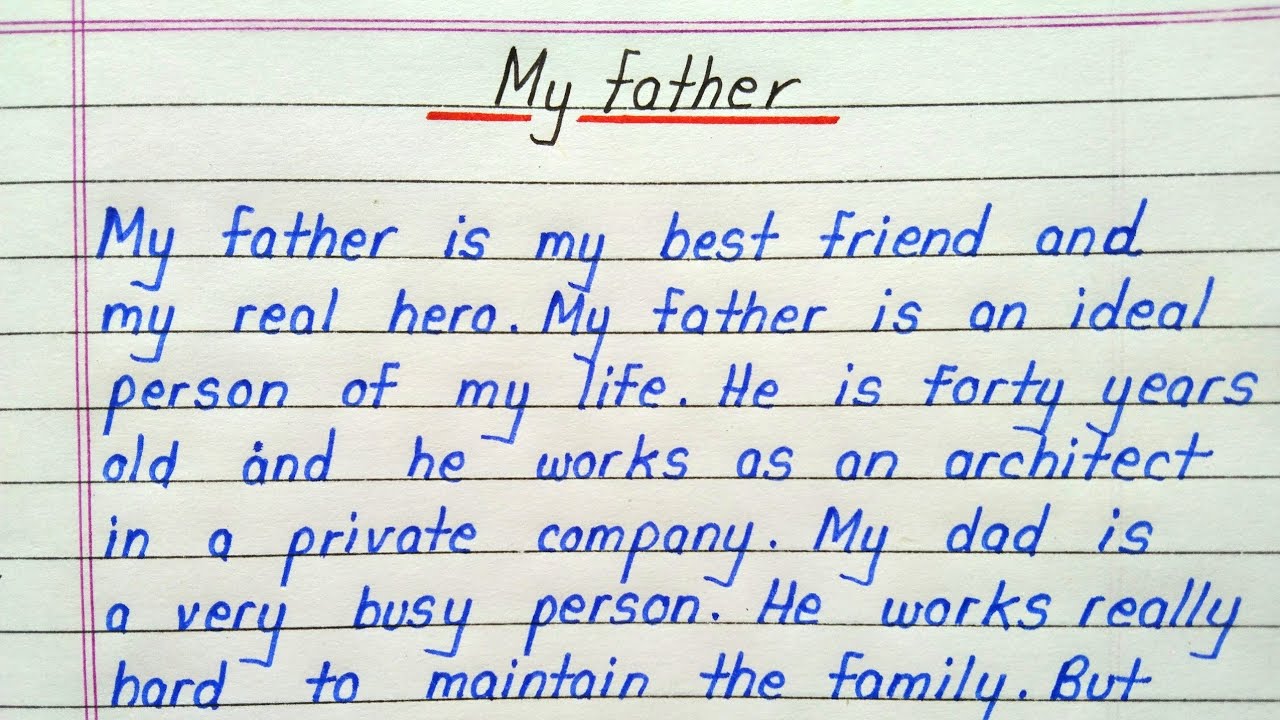 My father
My father is my best friend and
my real hero. My father is an ideal
person of my life. He is forty years
old and he works as an architect
in a private company. My dad is
a very busy person. He works really
hard to maintain the family. But